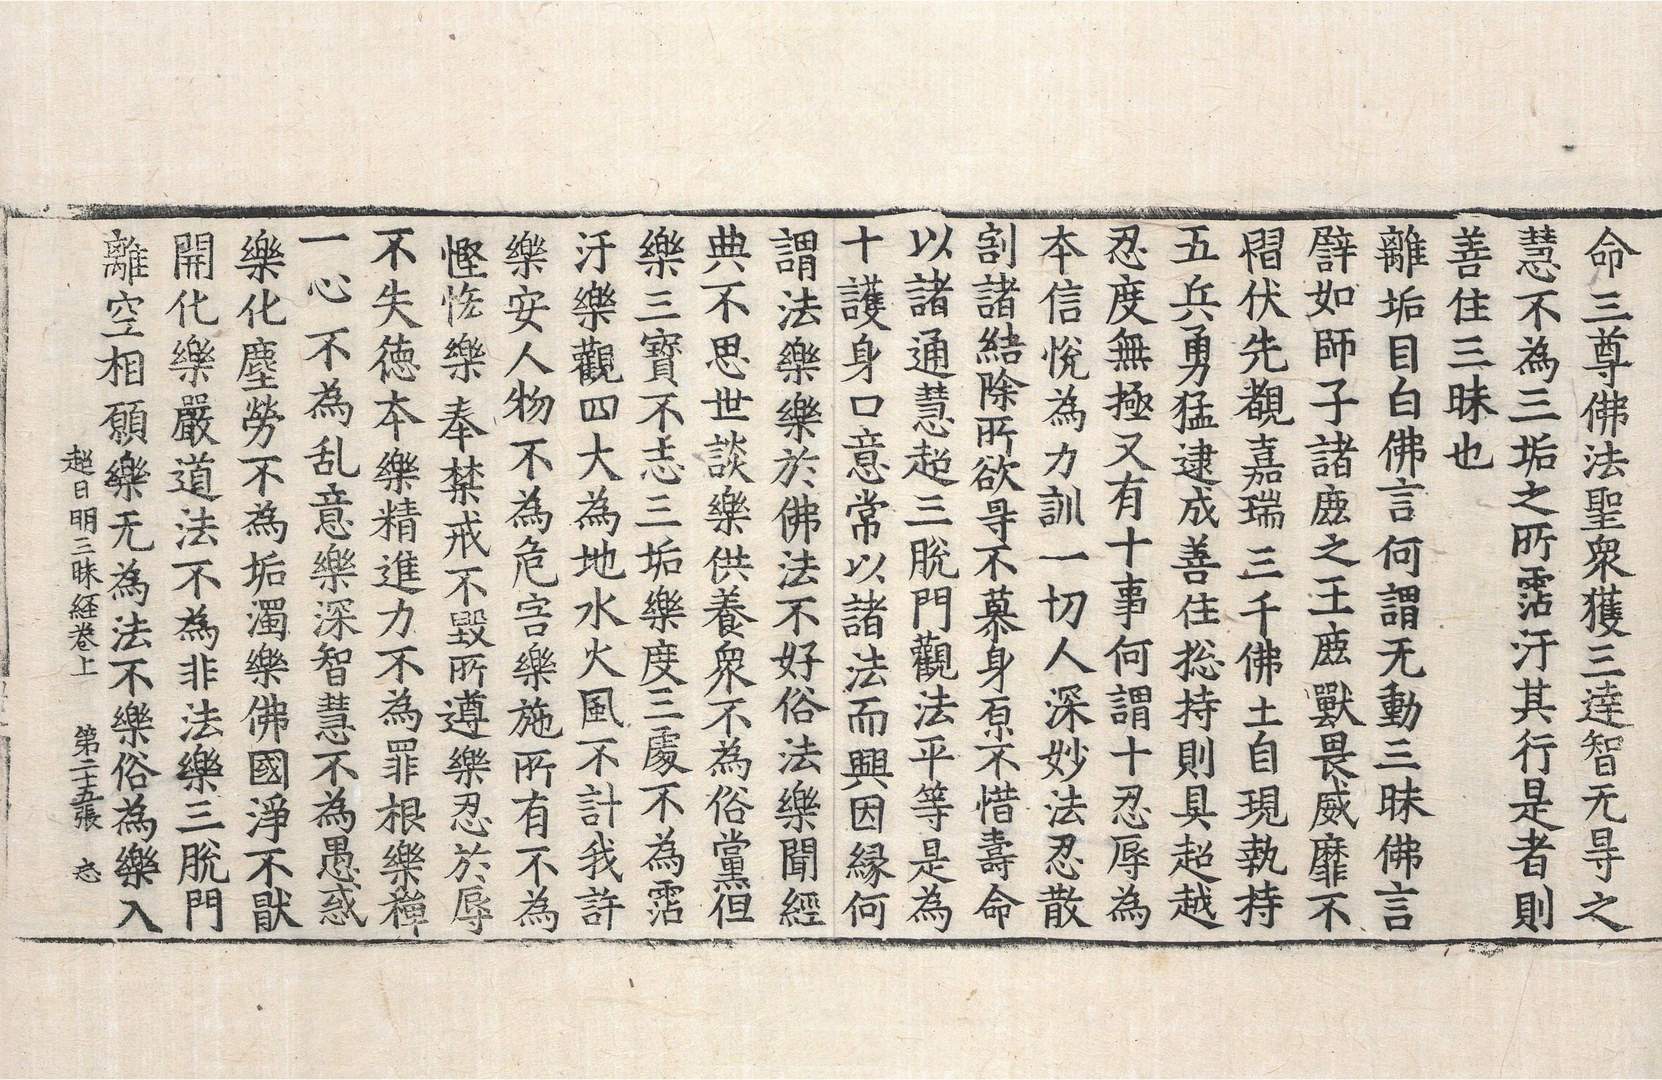 命三尊佛法聖衆獲三達智无㝵之
慧不為三垢之所霑汙其行是者則
善住三昧也
離垢目白佛言何謂无動三昧佛言
譬如師子諸鹿之王鹿獸畏威靡不
慴伏先覩嘉瑞三千佛土自現執持
五兵勇猛逮成善住捴持則具超越
忍度無極又有十事何謂十忍辱為
本信悅為力訓一切人深妙法忍散
割諸結除所欲㝵不慕身原不惜壽命
以諸通慧超三脫門觀法平等是為
十護身口意常以諸法而興因緣何
謂法樂樂於佛法不好俗法樂聞經
典不思世談樂供養衆不為俗黨但
樂三寳不忘三垢樂度三處不為霑
汙樂觀四大為地水火風不計我許
樂安人物不為危害樂施所有不為
慳悋樂奉禁戒不毀所遵樂忍於辱
不失徳本樂精進力不為罪根樂禪
一心不為乱意樂深智慧不為愚惑
樂化塵勞不為垢濁樂佛國淨不猒
開化樂嚴道法不為非法樂三脫門
離空相願樂无為法不樂俗為樂入
超日明三昧経卷上 第二十五張